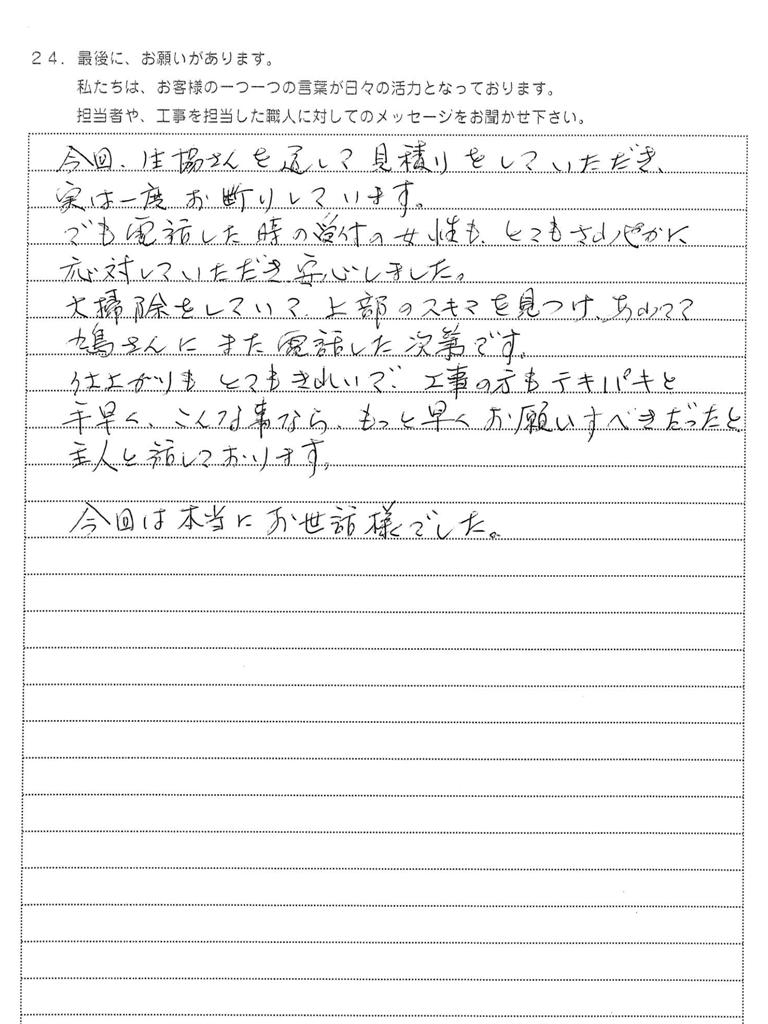 24．最後に、お願いがあります。
私たちは、お客様の一つ一つの言葉が日々の活力となっております。
担当者や、工事を担当した職人に対してのメッセージをお聞かせ下さい。
今回、生協さんを通して見積りをしていただき、
実は一度お断りしています。
でも電話した時の受付の女性も、とてもさわやかに
応対していただき安心しました。
大掃除をしていて、上部のスキマを見つけ、あわてて
鳩さんにまた電話した次第です。
仕上がりもとてもきれいで、工事の方もテキパキと
手早く、こんな事なら、もっと早くお願いすべきだったと
主人と話しております。
今回は本当にお世話様でした。